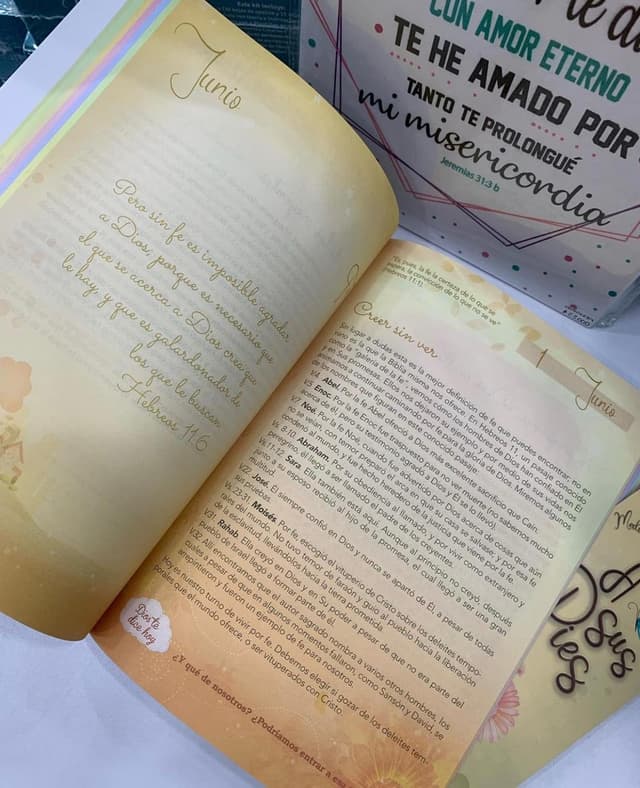 Este kit incluye:
CON AMOR ETERNO
TE HE AMADO POR
TANTO TE PROLONGUÉ
mi misericordia
Jeremías 31:3 b
Junio
Pero sin fe es imposible agradar
a Dios, porque es necesario que
el que se acerca a Dios crea que
le hay, y que es galardonador de
los que le buscan.
Hebreos 11:6
"Es, pues, la fe la certeza de lo que se
espera, la convicción de lo que no se ve"
(Hebreos 11:1).
1 Junio
Creer sin ver
Sin lugar a dudas esta es la mejor definición de fe que puedes encontrar, no en
vano es la que la Biblia misma nos ofrece. En Hebreos 11, un pasaje conocido
como la "galería de la fe" vemos cómo hombres de Dios, han confiado en Él
y en Sus promesas. Ellos nos dejaron su ejemplo y por medio de sus vidas nos
animamos a continuar caminando por fe para la gloria de Dios. Miremos algunos
de los nombres que figuran en este conocido pasaje:
V.4 Abel: Por la fe Abel ofreció a Dios más excelente sacrificio que Caín.
V.5 Enoc: Por la fe Enoc fue traspuesto para no ver muerte (no sabemos mucho
acerca de él, pero su testimonio agradó a Dios y Él se lo llevó).
V.7 Noé: Por la fe Noé, cuando fue advertido por Dios acerca de cosas que aún
no se veían, con temor preparó el arca en que su casa se salvase; y por esa fe
condenó al mundo, y fue hecho heredero de la justicia que viene por la fe.
Vs. 8-10: Abraham. Por su obediencia al llamado, y por vivir como extranjero y
peregrino, él llegó a ser llamado el padre de los creyentes.
Vs. 11-12: Sara. Ella también está aquí. Aunque al principio, no creyó, después
junto a su esposo recibió al hijo de la promesa, el cual llegó a ser una gran
multitud.
V.22: José. Él siempre confió en Dios y nunca se apartó de Él, a pesar de todas
las pruebas.
Vs. 23-31 Moisés. Por fe, escogió el vituperio de Cristo sobre los deleites tempo-
rales del mundo. No tuvo temor de faraón y guió al pueblo hacia la liberación
de la esclavitud, llevándolos hacia la tierra prometida.
V.31 Rahab. Ella creyó en Dios y en Su poder a pesar de que no era parte del
pueblo de Israel llegó a formar parte de él.
V.32: Allí encontramos que el autor sagrado nombra a varios otros hombres, los
cuales a pesar de que en algunos momentos fallaron, como Sansón y David, se
arrepintieron y fueron un ejemplo de fe para nosotros.
Hoy es nuestro turno de vivir por fe. Debemos elegir si gozar de los deleites tem-
porales que el mundo ofrece, o ser vituperados con Cristo.
Dios te
dice hoy
¿Y qué de nosotros? ¿Podríamos entrar a esa
A
sus
Pies